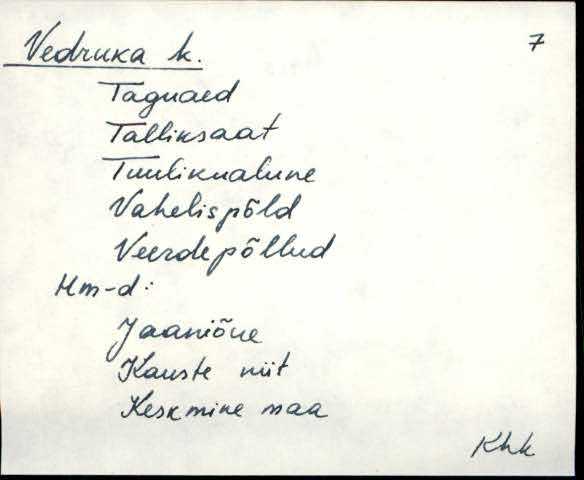 Vedruka k.
7
Taguaed
Talliksaat
Tuulikualune
Vahelispõld
Veerdepõllud
Hm-d:
Jaaniõue
Kauste niit
Keskmine maa
Khk